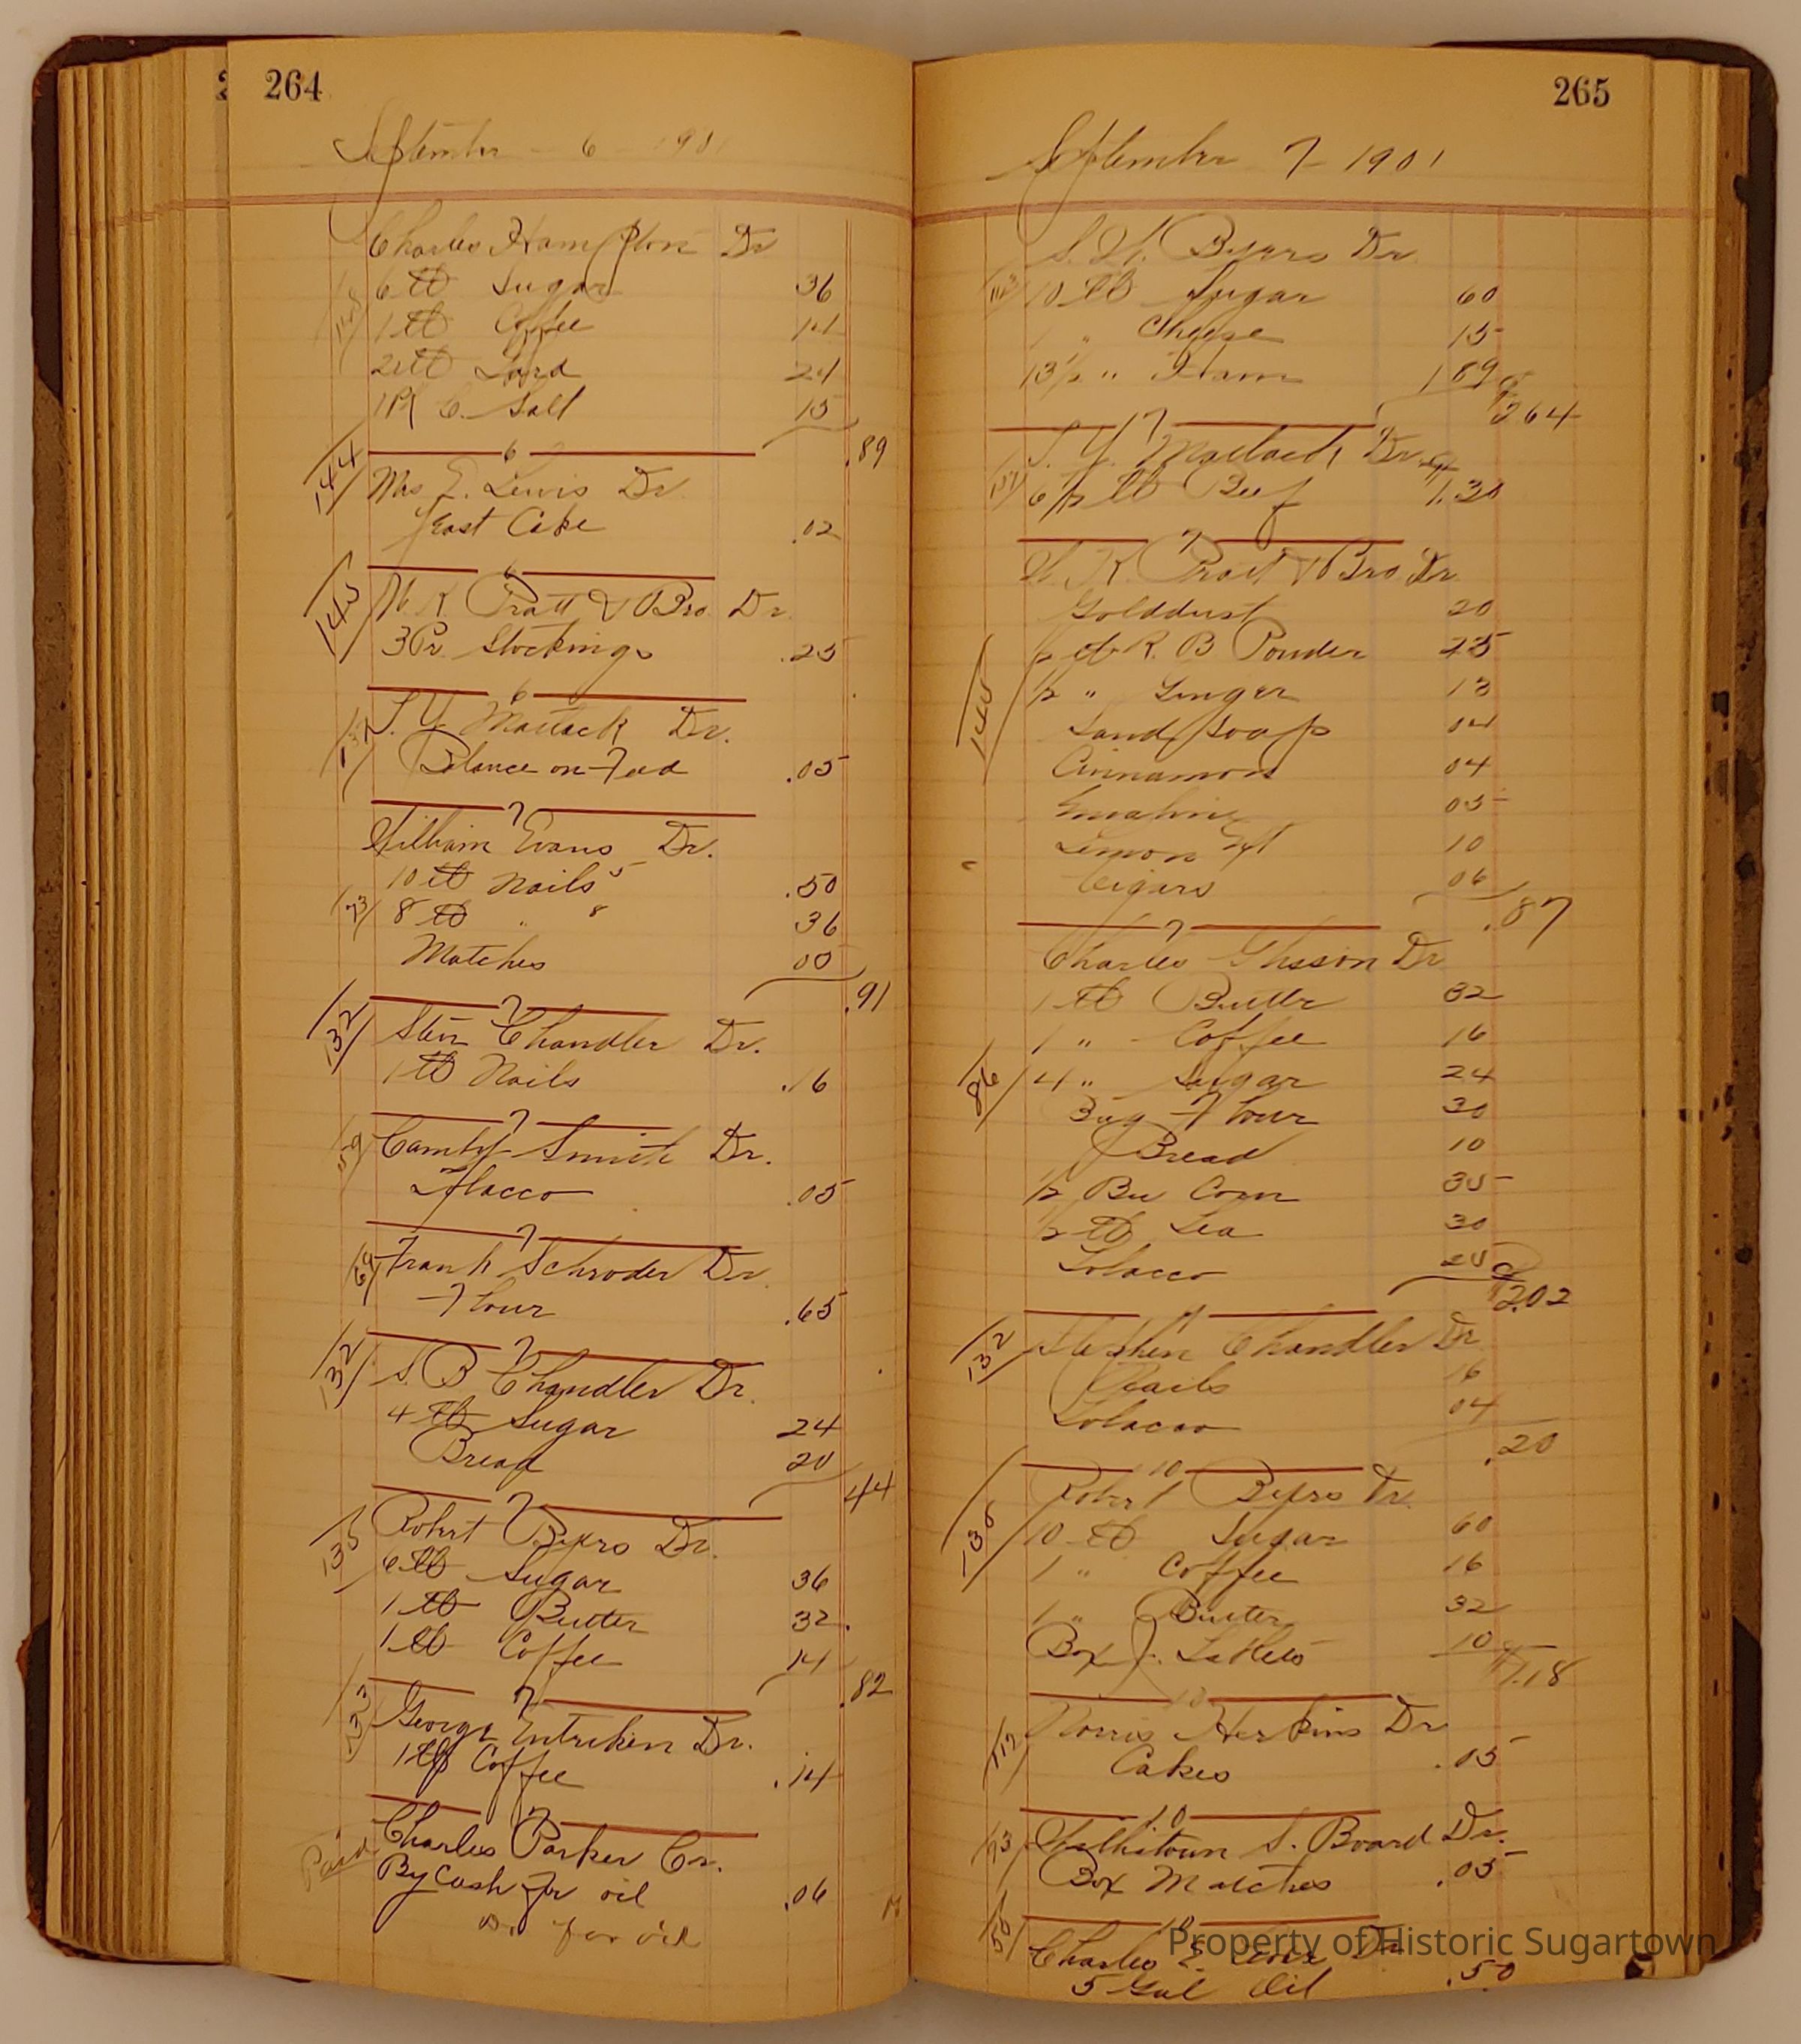 264
September - 6 - 1901
Charles Hampton Dr
6 lb Sugar 36
1 lb Coffee 14
2 lb Lard 24
1 Pk C. Salt 15
.89
6
144
Mrs E. Lewis Dr
yeast Cake .02
6
145
W K Pratt & Bro Dr.
3 Pr Stockings .25
6
137
T. Y. Matlack Dr.
Balance on Feed .05
7
William Evans Dr.
10 lb Nails 5 .50
73
8 lb " 8 36
Matches 05
.91
7
132
Steven Chandler Dr.
1 lb Nails .16
7
59
Smith Dr.
Tobacco .05
7
64
Frank Schroder Dr
Flour .65
7
132
S. B Chandler Dr.
4 lb Sugar 24
Bread 20
44
7
135
Robert Byers Dr.
6 lb Sugar 36
1 lb Butter 32.
1 lb Coffee 14
.82
7
133
George Entriken Dr.
1 lb Coffee .14
7
Paid
Charles Parker Cr.
By Cash for oil .06
Dr. for oil
265
September 7 - 1901
Byers Dr
10 lb Sugar 60
1 " Cheese 15
13 1/2 " Ham 1 89
$2 64
7
T. Y. Matlack Dr.
137
6 1/2 lb Beef 1.30
7
W. K. Pratt & Bro Dr
Golddust 20
1/2 lb R. B Powder 25
145
1/2 " Ginger 13
Sand Soap 04
Cinnamon 04
05
Lemon Ext 10
Cigars 06
.87
7
Charles Dr
1 lb Butter 32
1 " Coffee 16
86
4 " Sugar 24
Bag Flour 30
Bread 10
1/2 Bu Corn 35
1/2 lb Tea 30
Tobacco 25
$2.02
7
132
Stephen Chandler Dr
Nails 16
Tobacco 04
.20
10
Robert Byers Dr.
135
10 lb Sugar 60
1 " Coffee 16
1 " Butter 32
Box J. 10
$1.18
10
Norris Herkins Dr
112
Cakes .05
10
73
Willistown S. Board Dr.
Box Matches .05
10
50
Charles E. Dr
5 Gal Oil .50
Property of Historic Sugartown